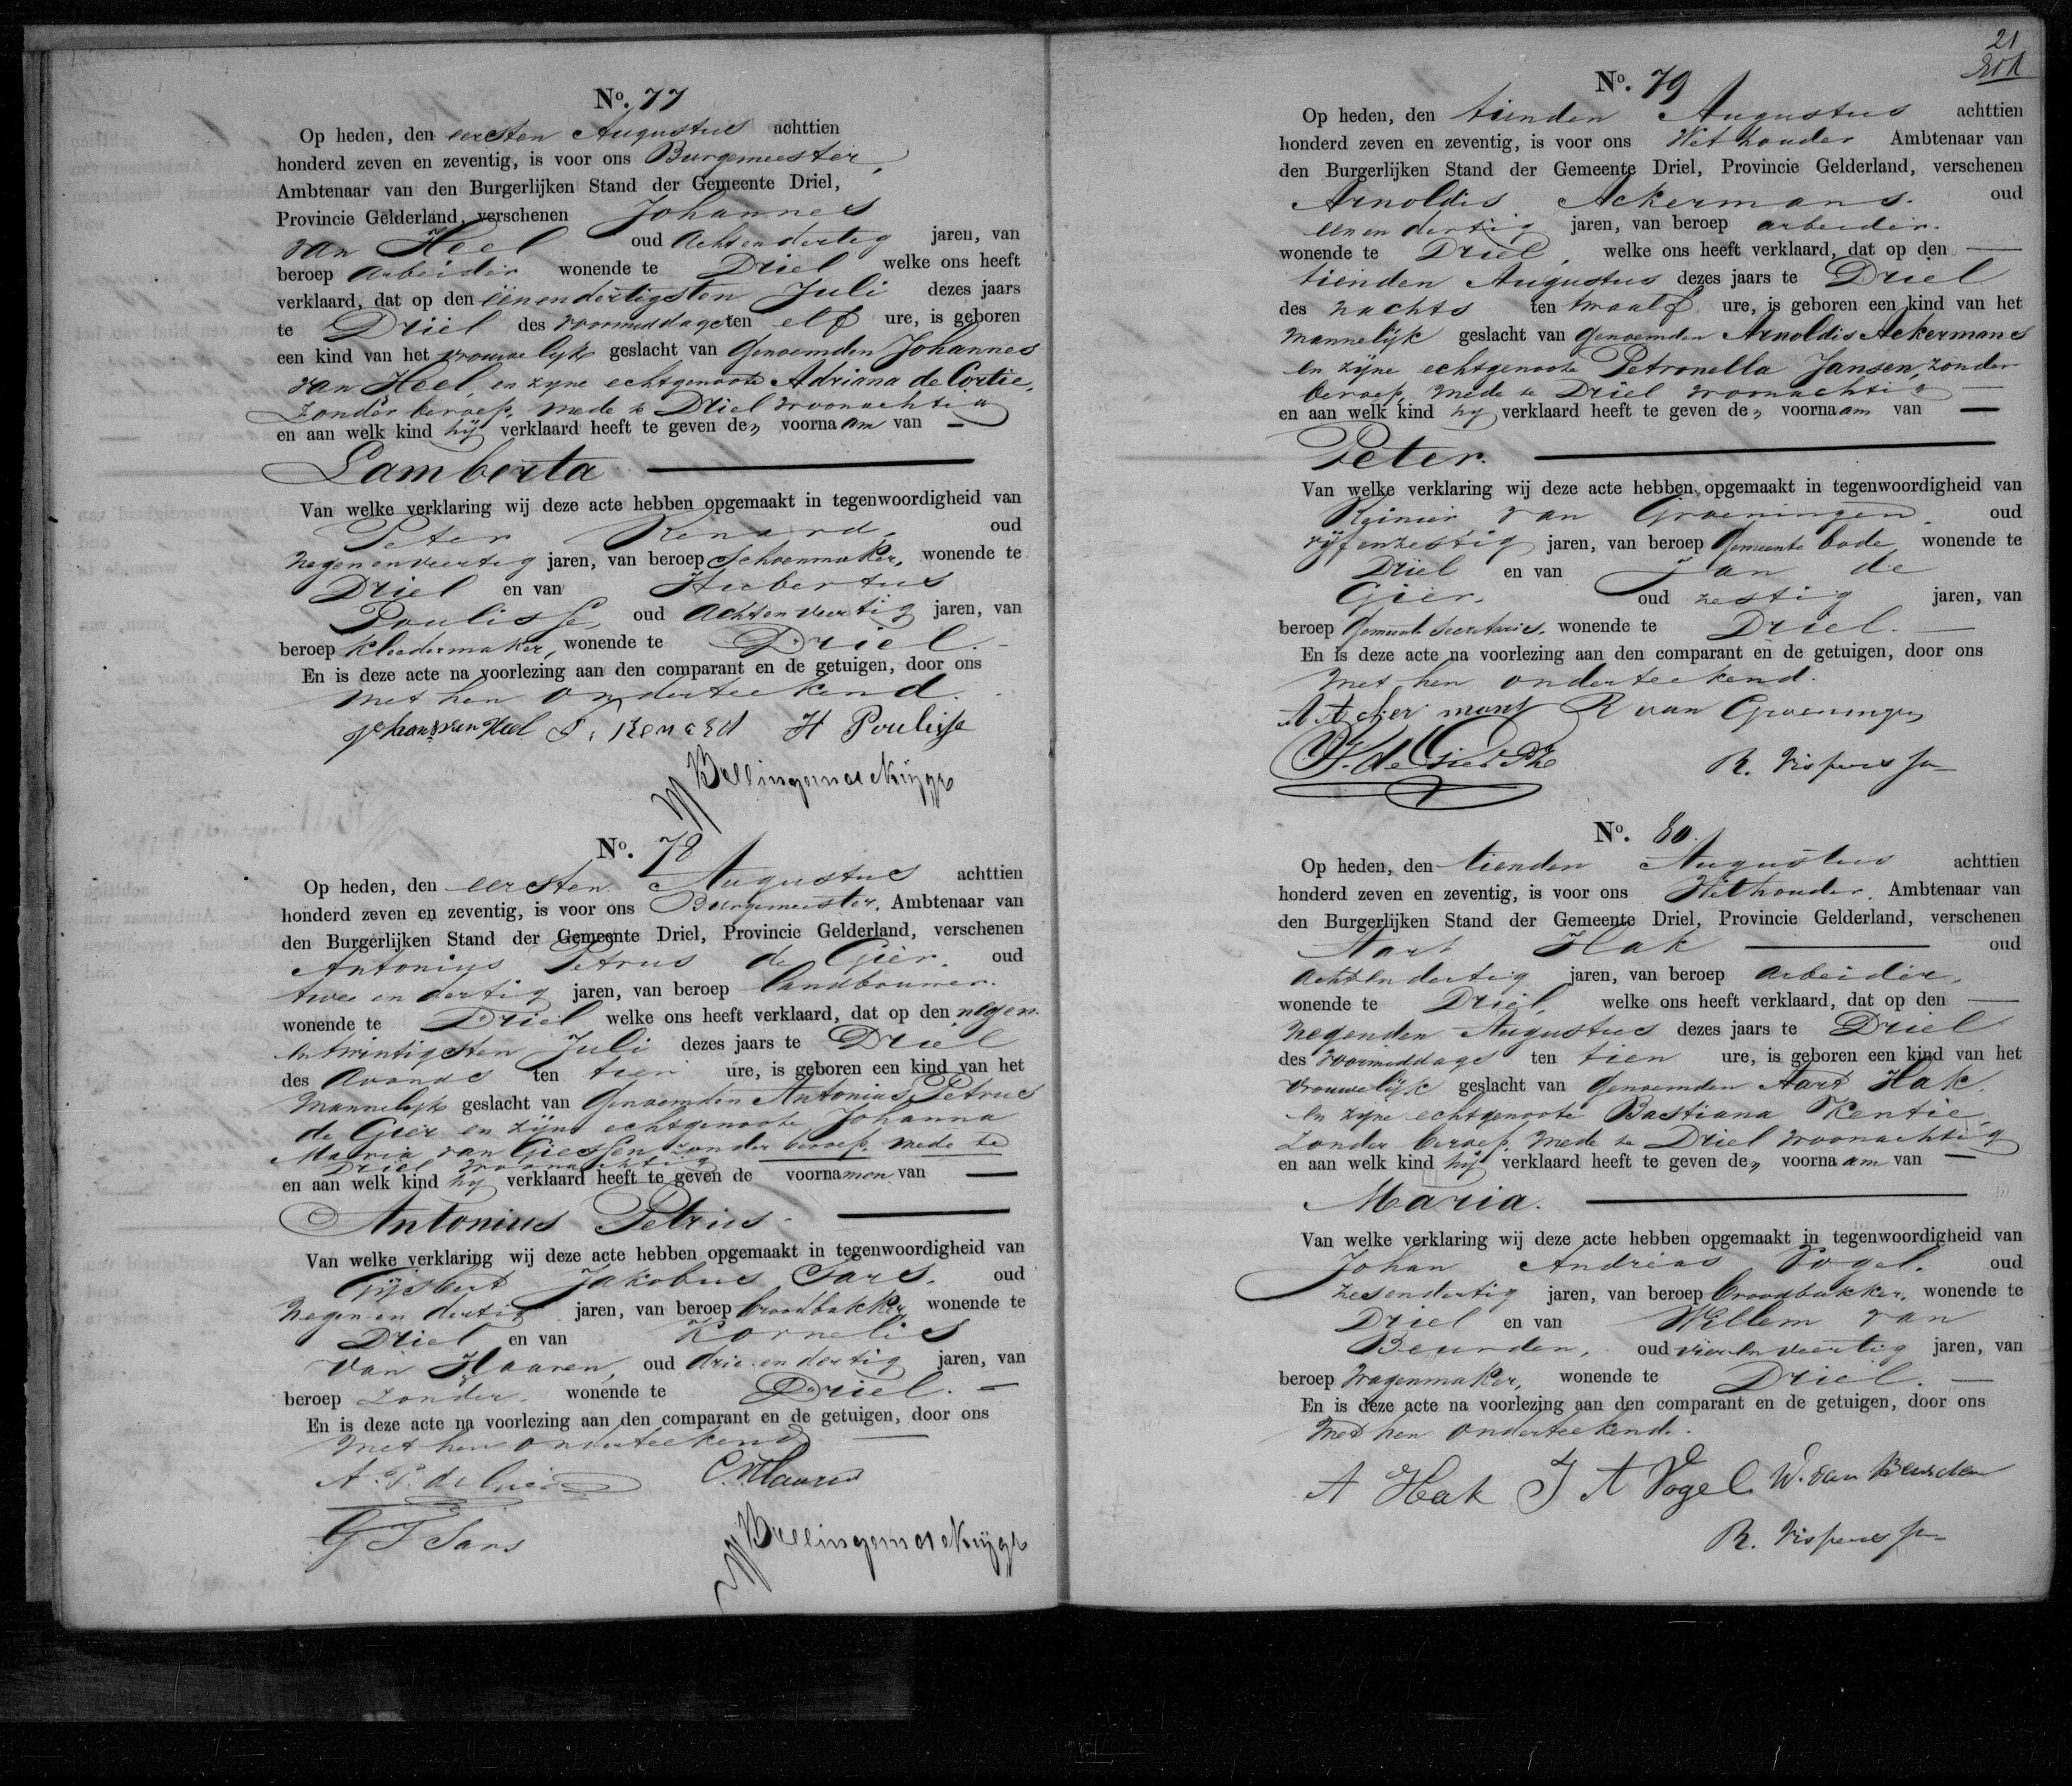 No. 77
Op heden, den eersten Augustus achttien
honderd zeven en zeventig, is voor ons Burgemeester,
Ambtenaar van den Burgerlijken Stand der Gemeente Driel,
Provincie Gelderland, verschenen Johannes
van Heel oud achtendertig jaren, van
beroep arbeider wonende te Driel welke ons heeft
verklaard, dat op den eenendertigsten Juli dezes jaars
te Driel des voormiddags ten elf ure, is geboren
een kind van het vrouwelijk geslacht van genoemden Johannes
van Heel, en zijne echtgenoote Adriana de Cortie,
zonder beroep, mede te Driel woonachtig
en aan welk kind hij verklaard heeft te geven den voornaam van —
Lamberta
Van welke verklaring wij deze acte hebben opgemaakt in tegenwoordigheid van
Peter Renard, oud
negenenveertig jaren, van beroep schoenmaker, wonende te
Driel en van Hubertus
Poulisse, oud achtenveertig jaren, van
beroep kleedermaker, wonende te Driel. –
En is deze acte na voorlezing aan den comparant en de getuigen, door ons
met hen onderteekend.
Johans van Heel P. Renard H Poulisse
No. 78
Op heden, den eersten Augustus achttien
honderd zeven en zeventig, is voor ons Burgemeester, Ambtenaar van
den Burgerlijken Stand der Gemeente Driel, Provincie Gelderland, verschenen
Antonius Petrus de Gier. oud
twee en dertig jaren, van beroep landbouwer.
wonende te Driel welke ons heeft verklaard, dat op den negen
entwintigsten Juli dezes jaars te Driel
des avonds ten tien ure, is geboren een kind van het
mannelijk geslacht van genoemden Antonius Petrus
de Gier en zijne echtgenoote Johanna
Maria van Giessen zonder beroep, mede te
Driel woonachtig
en aan welk kind hij verklaard heeft te geven de voornamen van —
Antonius Petrus.
Van welke verklaring wij deze acte hebben opgemaakt in tegenwoordigheid van
Gijsbert Jakobus Sars. oud
negen en dertig jaren, van beroep broodbakker, wonende te
Driel en van Kornelis
van Haaren, oud drie en dertig jaren, van
beroep zonder, wonende te Driel. –
En is deze acte na voorlezing aan den comparant en de getuigen, door ons
met hen onderteekend —
A. P. de Gier C. v Haaren
G J Sars
21
201
No. 79
Op heden, den tienden Augustus achttien
honderd zeven en zeventig, is voor ons Wethouder Ambtenaar van
den Burgerlijken Stand der Gemeente Driel, Provincie Gelderland, verschenen
Arnoldis Ackermans. oud
eenendertig jaren, van beroep arbeider.
wonende te Driel, welke ons heeft verklaard, dat op den —
tienden Augustus dezes jaars te Driel
des nachts ten twaalf ure, is geboren een kind van het
mannelijk geslacht van genoemden Arnoldis Ackermans
en zijne echtgenoote Petronella Jansen, zonder
beroep, mede te Driel woonachtig —
en aan welk kind hij verklaard heeft te geven den voornaam van —
Peter.
Van welke verklaring wij deze acte hebben opgemaakt in tegenwoordigheid van
Reinier van Groeningen. oud
vijfenzestig jaren, van beroep Gemeente bode, wonende te
Driel en van Jan de
Gier, oud zestig jaren, van
beroep Gemeente Secretaris, wonende te Driel. —
En is deze acte na voorlezing aan den comparant en de getuigen, door ons
met hen onderteekend.
A Acker mans R van Groeningen
J. de Gier
No. 80.
Op heden, den tienden Augustus achttien
honderd zeven en zeventig, is voor ons Wethouder, Ambtenaar van
den Burgerlijken Stand der Gemeente Driel, Provincie Gelderland, verschenen
Aart Hak — oud
achtendertig jaren, van beroep arbeider,
wonende te Driel, welke ons heeft verklaard, dat op den —
negenden Augustus dezes jaars te Driel
des voormiddags ten tien ure, is geboren een kind van het
vrouwelijk geslacht van genoemden Aart Hak,
en zijne echtgenoote Bastiana Kentie,
zonder beroep, mede te Driel woonachtig
en aan welk kind hij verklaard heeft te geven den voornaam van —
Maria.
Van welke verklaring wij deze acte hebben opgemaakt in tegenwoordigheid van
Johan Andreas Vogel. oud
zesendertig jaren, van beroep broodbakker, wonende te
Driel en van Willem van
Beurden, oud vierenveertig jaren, van
beroep wagenmaker, wonende te Driel. —
En is deze acte na voorlezing aan den comparant en de getuigen, door ons
met hen onderteekend.
A Hak J A Vogel W. van Beurden